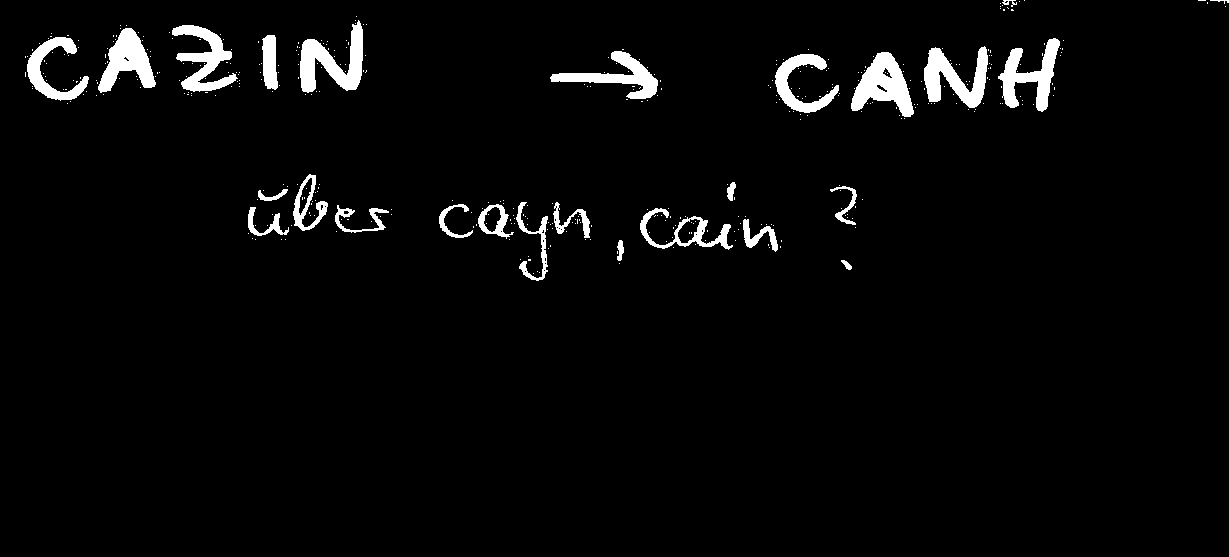 CAZIN → CANH
über cayn, cain ?